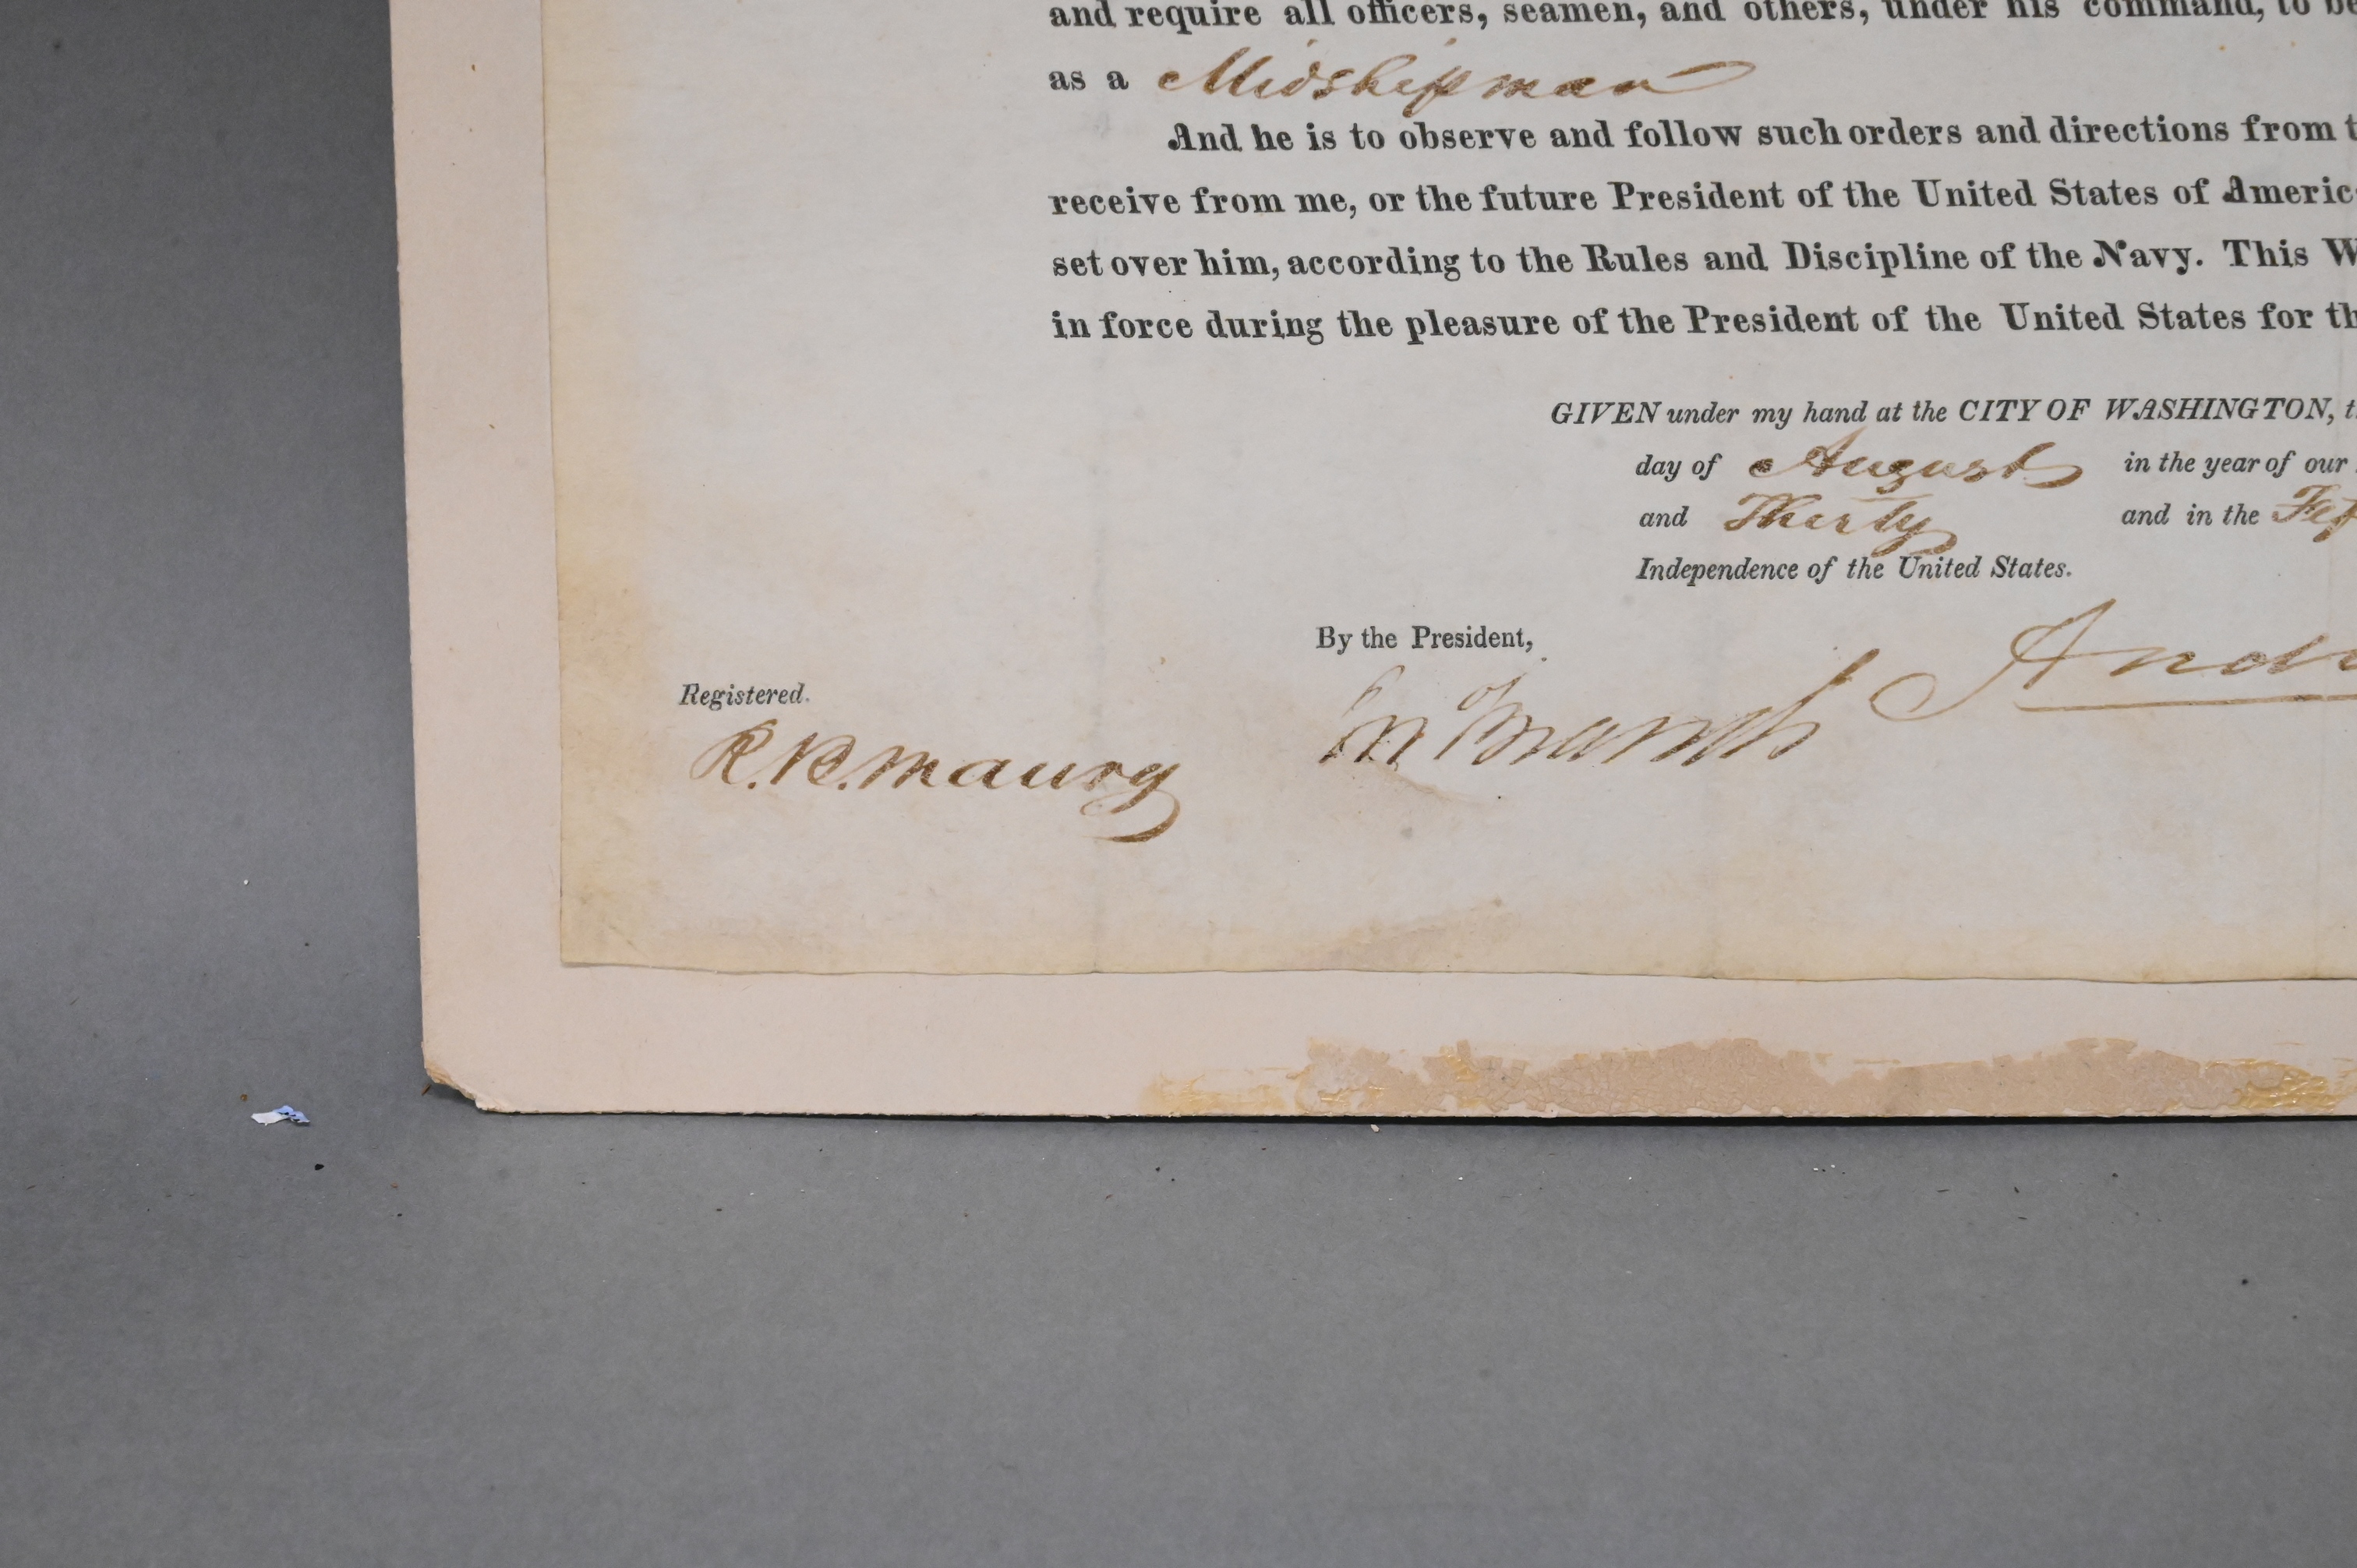 and require all officers, seamen, and others, under his command, to be
as a Midshipman
And he is to observe and follow such orders and directions from t
receive from me, or the future President of the United States of Americ
set over him, according to the Rules and Discipline of the Navy. This W
in force during the pleasure of the President of the United States for th
GIVEN under my hand at the CITY OF WASHINGTON, t
day of August in the year of our
and Thirty and in the Fif
Independence of the United States.
By the President,
Andr
Registered.
Jn Branch
R.B. Maury